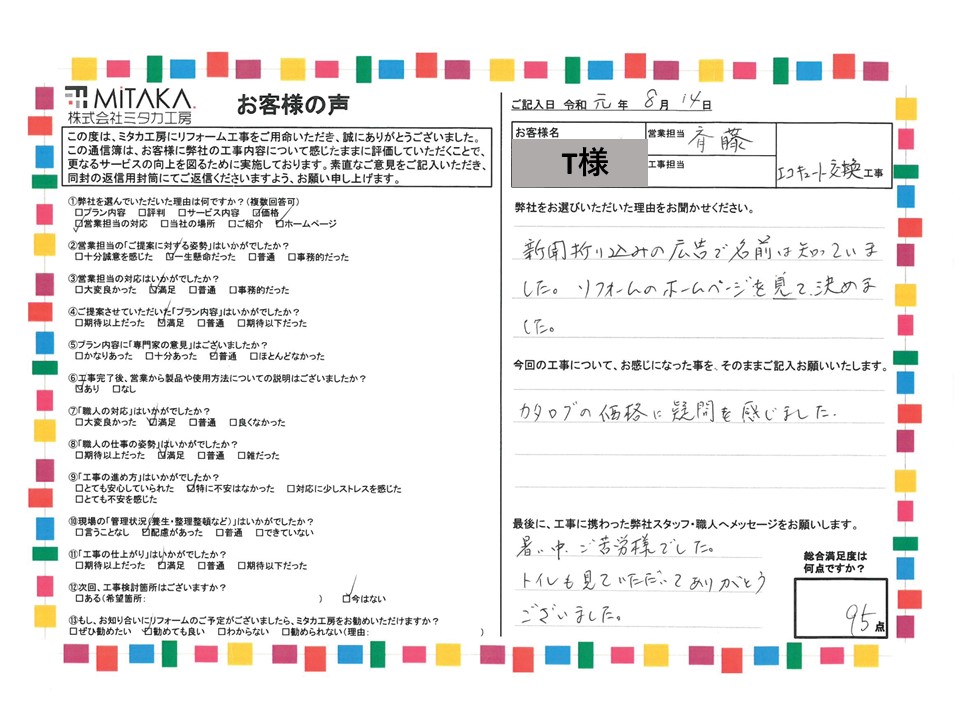 MiTAKA.
株式会社ミタカ工房
お客様の声
この度は、ミタカ工房にリフォーム工事をご用命いただき、誠にありがとうございました。
この通信簿は、お客様に弊社の工事内容について感じたままに評価していただくことで、
更なるサービスの向上を図るために実施しております。素直なご意見をご記入いただき、
同封の返信用封筒にてご返信くださいますよう、お願い申し上げます。
①弊社を選んでいただいた理由は何ですか？（複数回答可）
□プラン内容 □評判 □サービス内容 ☑価格
☑営業担当の対応 □当社の場所 □ご紹介 ☑ホームページ
②営業担当の「ご提案に対する姿勢」はいかがでしたか？
□十分誠意を感じた ☑一生懸命だった □普通 □事務的だった
③営業担当の対応はいかがでしたか？
□大変良かった ☑満足 □普通 □事務的だった
④ご提案させていただいた「プラン内容」はいかがでしたか？
□期待以上だった ☑満足 □普通 □期待以下だった
⑤プラン内容に「専門家の意見」はございましたか？
□かなりあった □十分あった ☑普通 □ほとんどなかった
⑥工事完了後、営業から製品や使用方法についての説明はございましたか？
☑あり □なし
⑦「職人の対応」はいかがでしたか？
□大変良かった ☑満足 □普通 □良くなかった
⑧「職人の仕事の姿勢」はいかがでしたか？
□期待以上だった ☑満足 □普通 □雑だった
⑨「工事の進め方」はいかがでしたか？
□とても安心していられた ☑特に不安はなかった □対応に少しストレスを感じた
□とても不安を感じた
⑩現場の「管理状況（養生・整理整頓など）」はいかがでしたか？
□言うことなし ☑配慮があった □普通 □できていない
⑪「工事の仕上がり」はいかがでしたか？
□期待以上だった ☑満足 □普通 □期待以下だった
⑫次回、工事検討箇所はございますか？
□ある（希望箇所： ） ☑今はない
⑬もし、お知り合いにリフォームのご予定がございましたら、ミタカ工房をお勧めいただけますか？
□ぜひ勧めたい ☑勧めても良い □わからない □勧められない（理由： ）
ご記入日 令和 元 年 8 月 14 日
お客様名
T様
営業担当 斉藤
工事担当
エコキュート交換工事
弊社をお選びいただいた理由をお聞かせください。
新聞折り込みの広告で名前は知っていま
した。リフォームのホームページを見て、決めま
した。
今回の工事について、お感じになった事を、そのままご記入お願いいたします。
カタログの価格に疑問を感じました.
最後に、工事に携わった弊社スタッフ・職人へメッセージをお願いします。
暑い中、ご苦労様でした。
トイレも見ていただいてありがとう
ございました。
総合満足度は
何点ですか？
95点